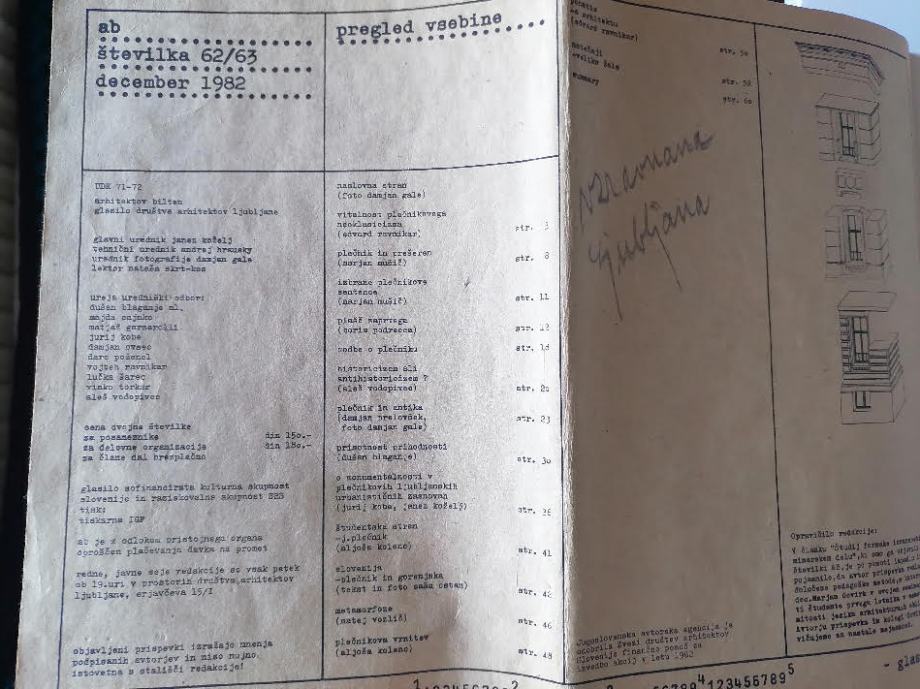 ab
številka 62/63
december 1982
pregled vsebine
UDK 71-72
arhitektov bilten
glasilo društva arhitektov ljubljane
glavni urednik janez koželj
tehnični urednik andrej hrausky
urednik fotografije damjan gale
lektor nataša
ureja uredniški odbor:
dušan blaganje ml.
majda
matjaž garzarolli
jurij kobe
damjan ovsec
darc
vojteh ravnikar
lučka šarec
vinko torkar
aleš vodopivec
cena dvojne številke
za posameznike din 150.-
za delovne organizacije din 180.-
za člane dal brezplačno
glasilo sofinancirata kulturna skupnost
slovenije in raziskovalna skupnost
tisk:
tiskarna IGP
ab je z odlokom pristojnega organa
oproščen plačevanja davka na promet
redne, javne seje redakcije so vsak petek
ob 19.uri v prostorih društva arhitektov
ljubljane, erjavčeva 15/I
objavljeni prispevki izražajo mnenja
podpisanih avtorjev in niso nujno
istovetna s stališči redakcije!
naslovna stran
(foto damjan gale)
vitalnost plečnikovega
neoklasicizma
(edvard ravnikar) str. 3
plečnik in prešeren
(marjan mušič) str. 8
izbrane plečnikove
sentence
(marjan mušič) str. 11
(boris podrecca) str. 12
sodbe o plečniku
historicizem ali
antihistoricizem ?
(aleš vodopivec)
plečnik in antika
(damjan prelovšek,
foto damjan gale) str. 23
prisotnost prihodnosti
(dušan blaganje) str. 30
o monumentalnosti v
plečnikovih ljubljanskih
urbanističnih zasnovah
(jurij kobe, janez koželj) str. 36
študentska stran
-j.plečnik
(aljoša kolenc) str. 41
slovenija
-plečnik in gorenjska
(tekst in foto saša ostan) str. 42
metamorfoze
(matej vozlič) str. 46
plečnikova vrnitev
(aljoša kolenc) str. 48
(edvard ravnikar)
natečaji
summary
ljubljana
Jugoslovanska avtorska agencija je
odobrila zvezi društev arhitektov
Slovenije finančno pomoč za
izvedbo akcij v letu 1982
Opravičilo redakcije: